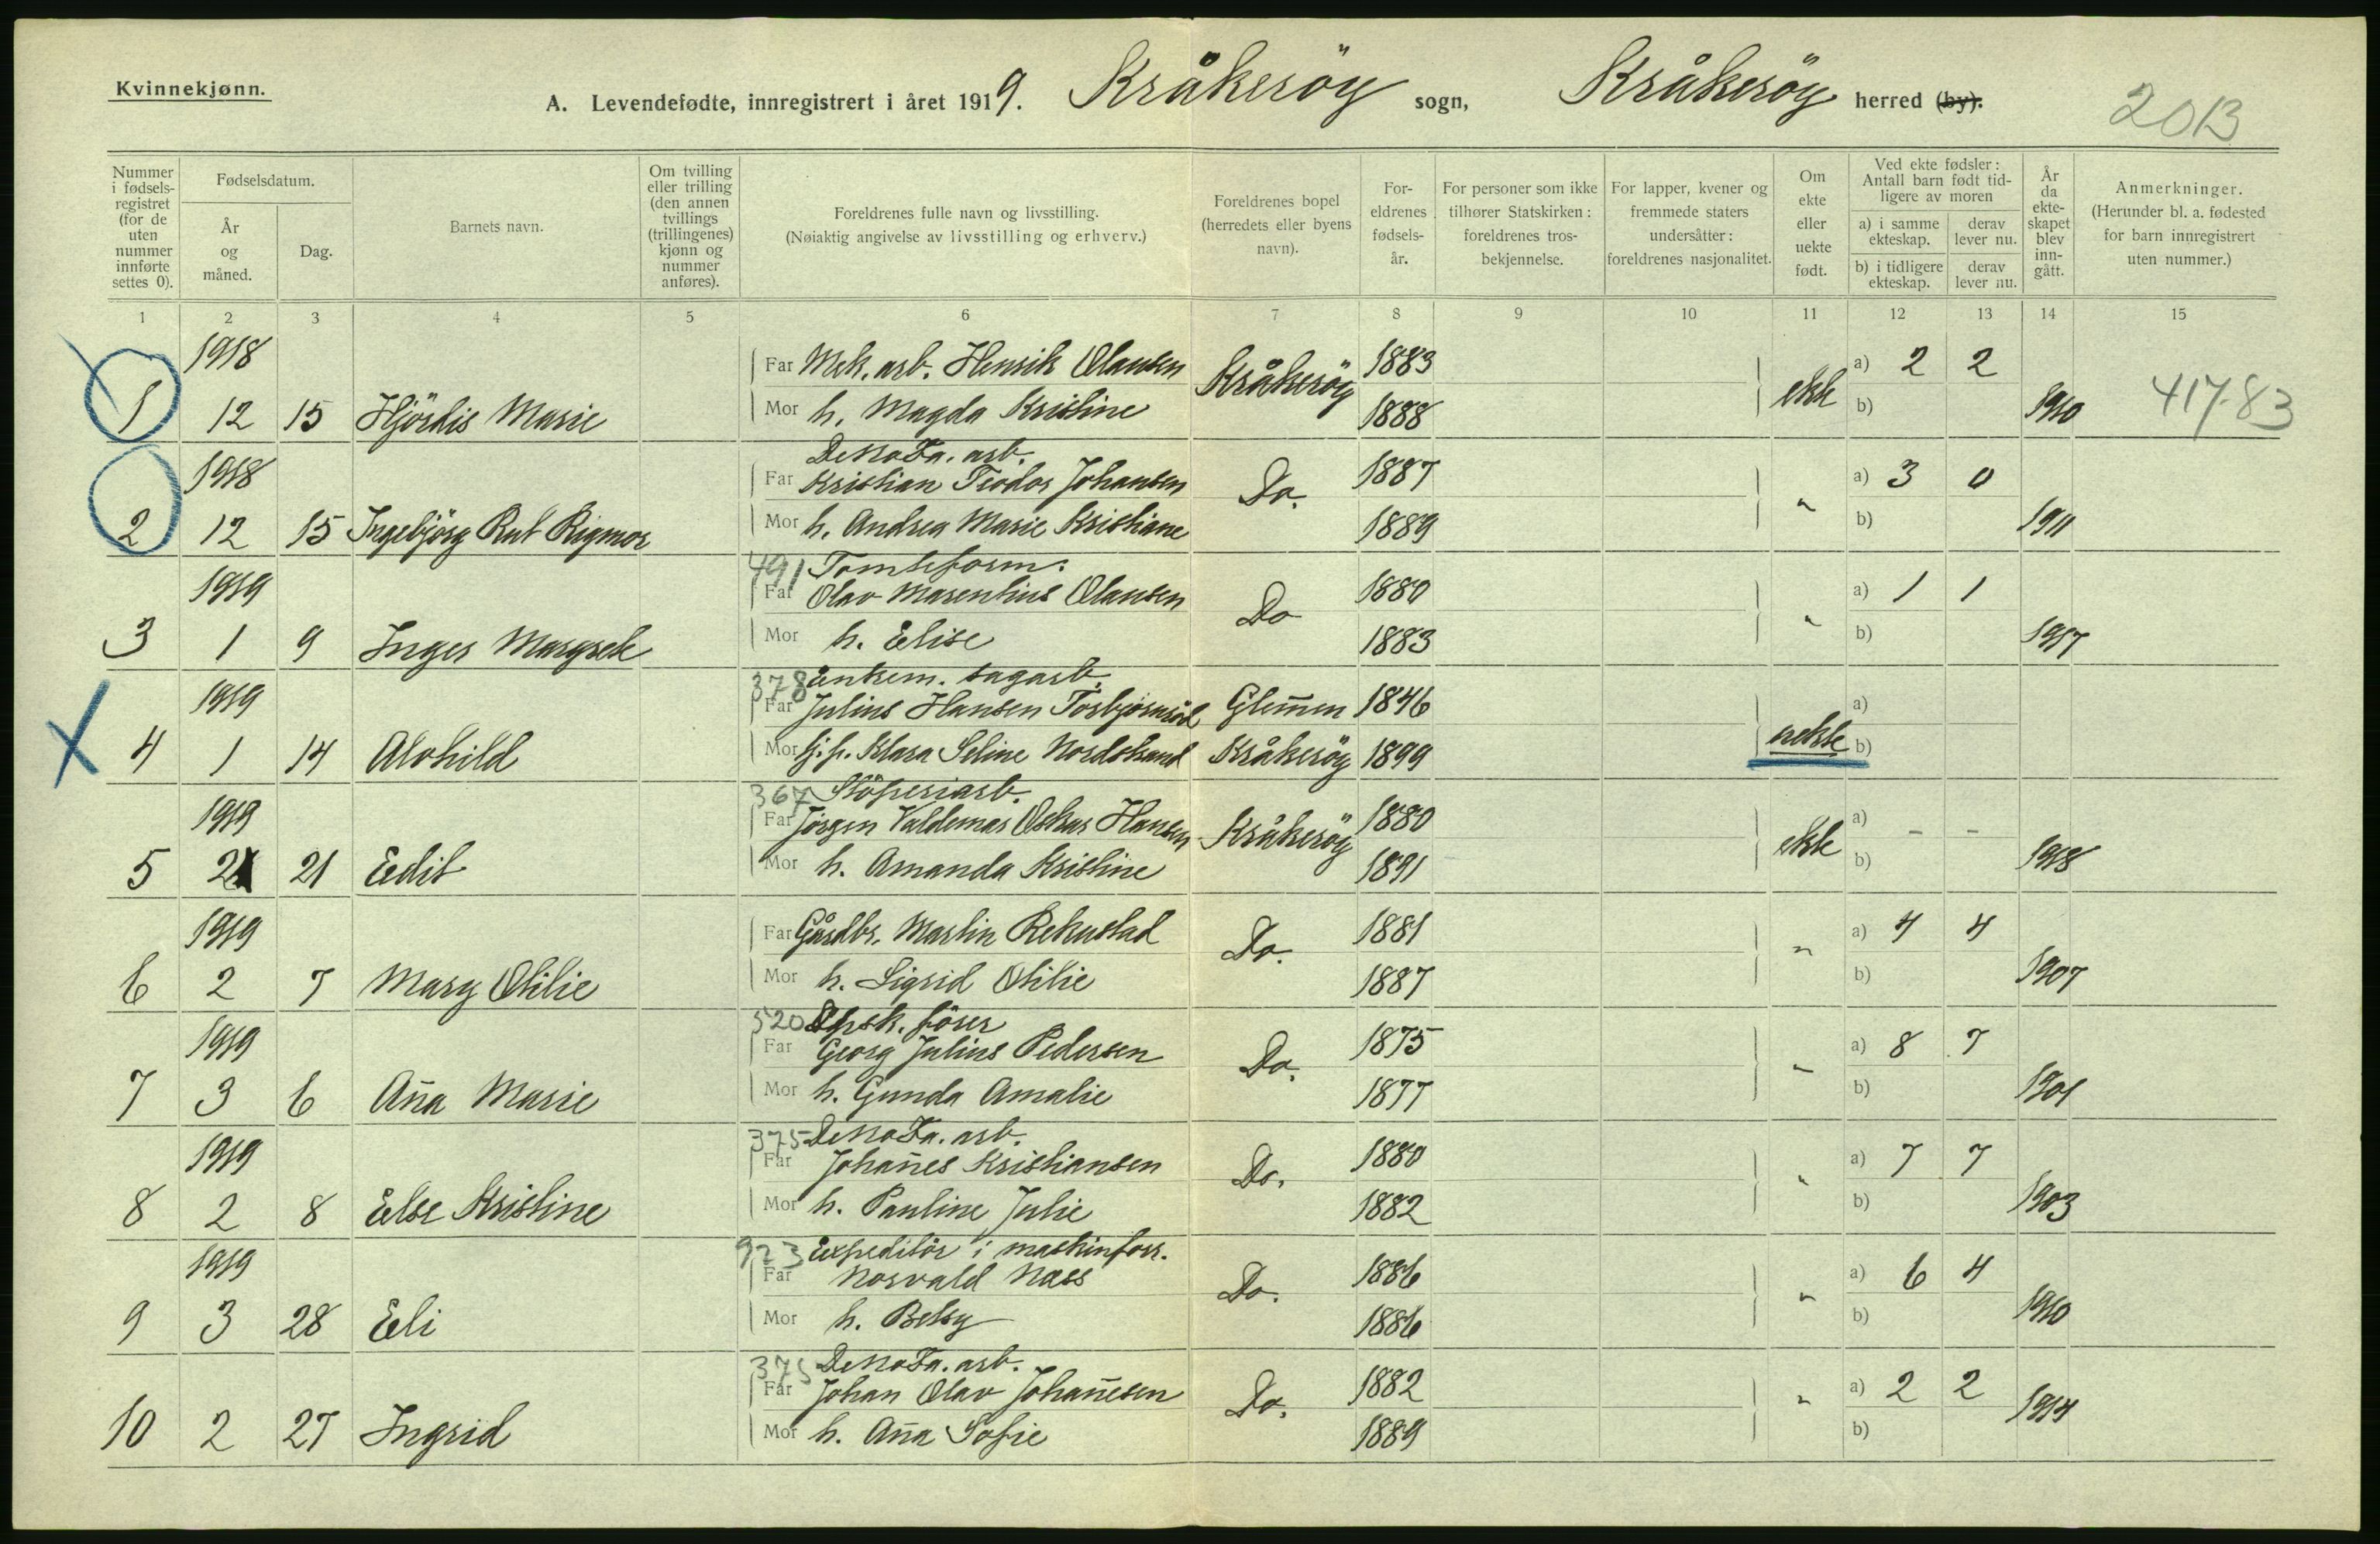 Kvinnekjønn.
A. Levendefødte, innregistrert i året 1919. Kråkeröy sogn, Kråkeröy herred (by).
20B
Nummer i fødsels-registret (for de uten nummer innførte settes 0).
Fødselsdatum.
År og måned.
Dag.
Barnets navn.
Om tvilling eller trilling (den annen tvillings (trillingenes) kjønn og nummer anføres).
Foreldrenes fulle navn og livsstilling.
(Nøiaktig angivelse av livsstilling og erhverv.)
Foreldrenes bopel (herredets eller byens navn).
For-eldrenes fødsels-år.
For personer som ikke tilhører Statskirken: foreldrenes tros-bekjennelse.
For lapper, kvener og fremmede staters undersåtter: foreldrenes nasjonalitet.
Om ekte eller uekte født.
Ved ekte fødsler: Antall barn født tid-ligere av moren
a) i samme ekteskap.
derav lever nu.
b) i tidligere ekteskap.
derav lever nu.
År da ekte-skapet blev inn-gått.
Anmerkninger.
(Herunder bl. a. fødested for barn innregistrert uten nummer.)
1 2 3 4 5 6 7 8 9 10 11 12 13 14 15
1918 Far Mek. arb. Henrik Olausen Kråkeröy 1883 a) 2 2
1 12 15 Hjördis Marie Mor h. Magda Kristine 1888 ekte b) 1910 417-83
DeNoFa. arb.
1918 Far Kristian Teodor Johansen Do. 1887 a) 3 0
2 12 15 Ingebjörg Rut Rigmor Mor h. Andrea Marie Kristiane 1889 " b) 1911
491 Tomteform.
1919 Far Olav Marentius Olausen Do 1880 a) 1 1
3 1 9 Inger Margrete Mor h. Elise 1883 " b) 1917
378 Enkem. sagarb.
1919 Far Julius Hansen Torbjörnröd Glem̄en 1846 a)
4 1 14 Alvhild Mor Klara Seline Nordstrand Kråkeröy 1899 uekte b)
367 Stöperiarb.
1919 Far Jörgen Valdemar Oskar Hansen Kråkeröy 1880 a) - -
5 2 21 Edit Mor h. Amanda Kristine 1891 ekte b) 1918
1919 Far Gårdbr. Martin Rekustad Do. 1881 a) 4 4
6 2 7 Mary Otilie Mor h. Sigrid Otilie 1887 " b) 1907
520 Dpsk. förer
1919 Far Georg Julius Pedersen Do. 1875 a) 8 7
7 3 6 An̄a Marie Mor h. Gunda Amalie 1877 " b) 1901
375 DeNoFa. arb.
1919 Far Johan̄es Kristiansen Do. 1880 a) 7 7
8 2 8 Else Kristine Mor h. Pauline Julie 1882 " b) 1903
923 Expeditör i maskinforr.
1919 Far Norvald Næss Do. 1886 a) 6 4
9 3 28 Eli Mor h. Betsy 1886 " b) 1910
375 DeNoFa. arb.
1919 Far Johan Olav Johan̄esen Do. 1882 a) 2 2
10 2 27 Ingrid Mor h. An̄a Sofie 1889 " b) 1914